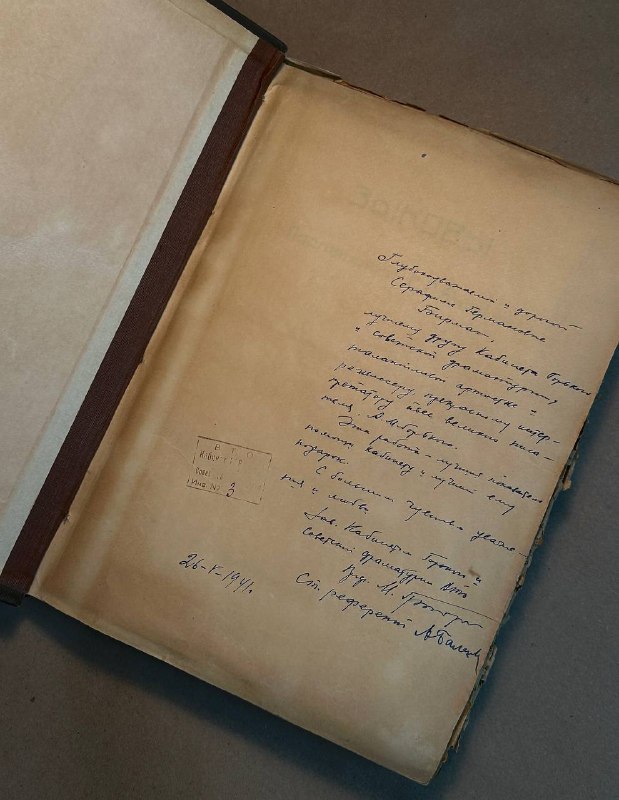 Глубокоуважаемой и дорогой
Серафиме Германовне
Бирман,
лучшему другу Кабинета Горького
и советской драматургии,
талантливой артистке-
режиссеру, прекрасному интер-
претатору пьес великого писа-
теля А.М. Горького.
Эта работа – лучшая
помощь кабинету и лучший ему
подарок.
С большим чувством уваже-
ния и любви
Зав. Кабинетом Горького и
советской драматургии ВТО
М.
Ст. референт
26-V-1941г.
ВТО
КАБИНЕТ
СОВЕТ
ИНВ. № 3